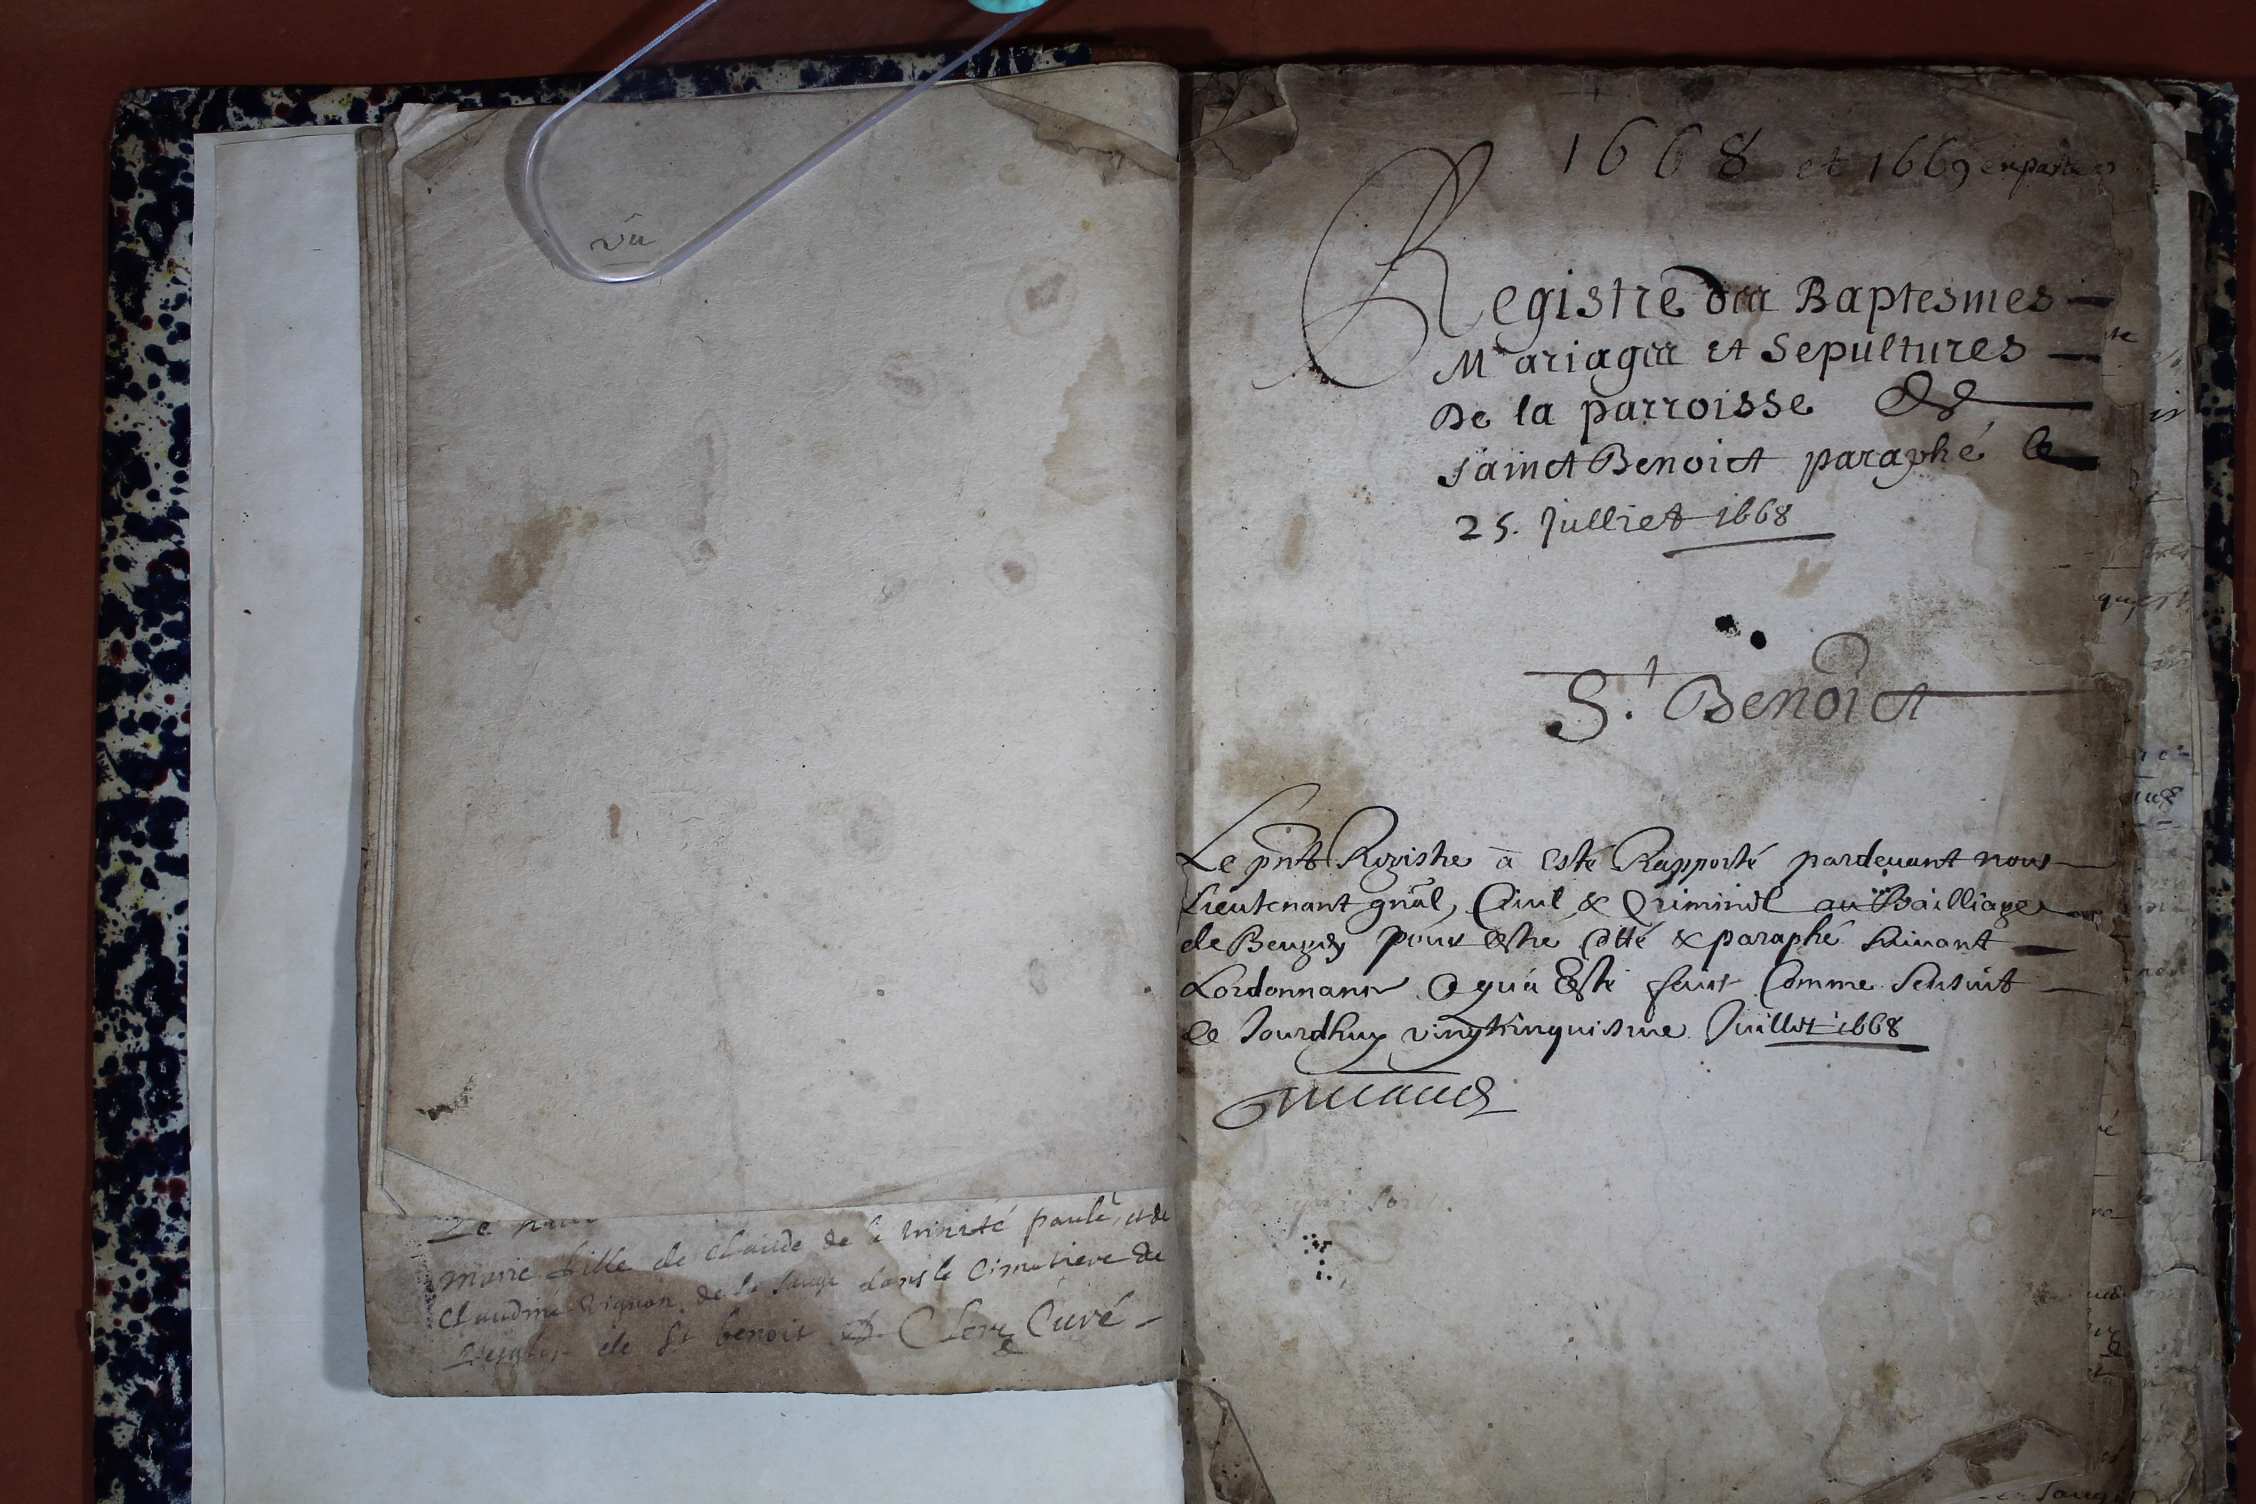 vû
marie fille de claude de la trinité paulé, et de
claudine vignon de la sauge dans le Cimetiere de
de St benoit Clerc Curé
1668 et 1669 en partie
Registre des Baptesmes
Mariages et Sepultures
De la parroisse de
sainct Benoict paraphé le
25. Julliet 1668
St. Benoict
Le pnt Registre a esté Rapporté pardeuant nous
Lieutenant gnal, Ciuil & Criminel au Bailliage
de Beugey pour estre Cotté & paraphé suiuant
Lordonnance Ce qui a Esté faict Comme sensuit
ce Jourdhuy vingtcinquiesme Juillet 1668